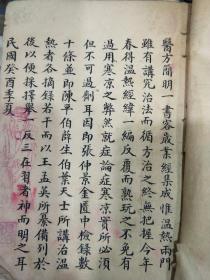 醫方簡明一書容歲素經集成惟溫熱兩門
雖有講究治法而循方治之終無把握今年
春得溫熱經緯一編反覆而熟玩之不免有
過用寒涼之弊然就症論症寒涼實所必須
但不可過劑耳因即張仲景金匱中檢錄數
十條並即陳平伯薛生白葉天士所講治溫
熱者各摘錄若干而以王孟英所纂備列於
後以便採擇舉一反三在習者神而明之耳
民國癸酉季夏